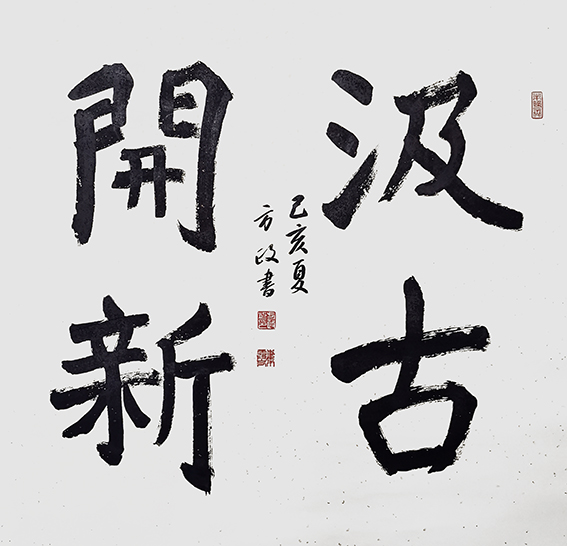 汲古
開新
己亥夏
方政書